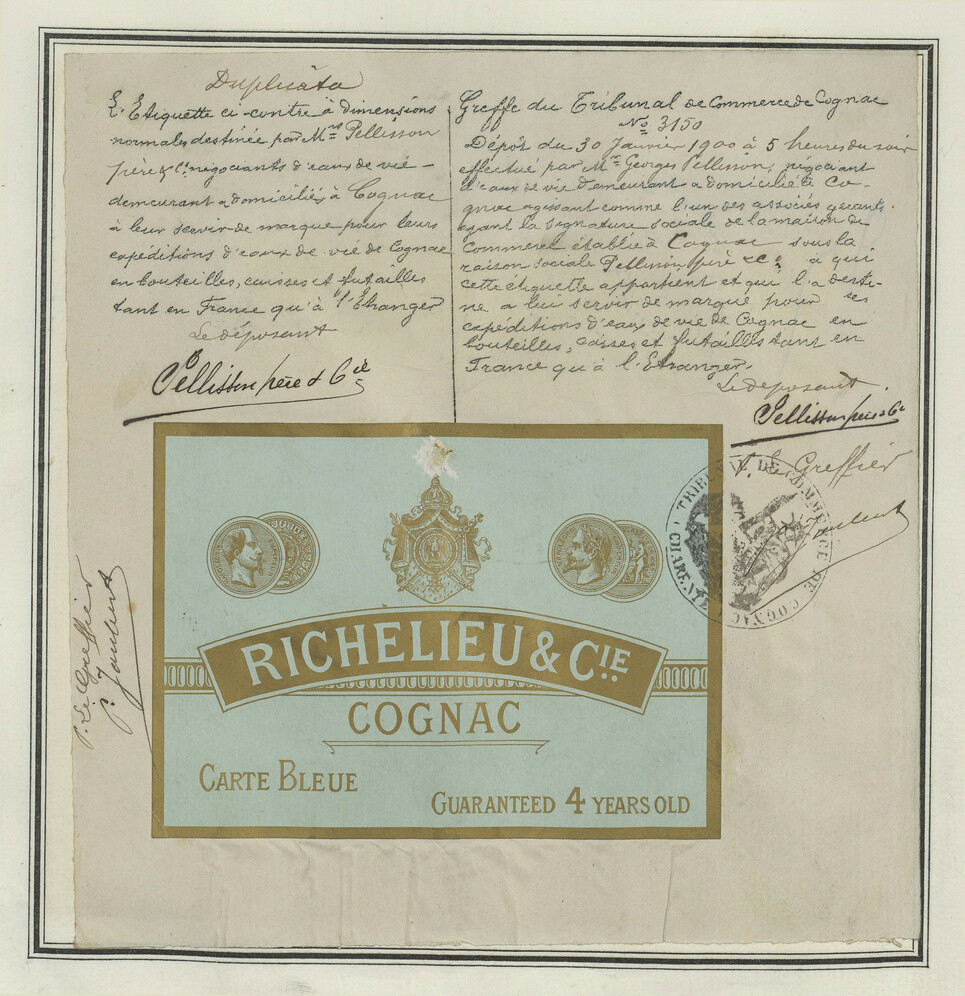 Duplicata
L'Etiquette ci-contre à dimensions
normales destinée par Mrs Pellisson
père & Cie négociants d'eaux de vie
demeurant & domiciliés à Cognac
à leur servir de marque pour leurs
expéditions d'eaux de vie de Cognac
en bouteilles, caisses et futailles
tant en France qu'à l'Etranger
Le déposant
Pellisson père & Cie
Greffe du Tribunal de Commerce de Cognac
No 3150
Dépôt du 30 Janvier 1900 à 5 heures du soir
effectué par Mr Georges Pellisson, négociant
d'eaux de vie demeurant & domicilié à Co-
gnac agissant comme l'un des associés gérants
ayant la signature sociale de la maison de
Commerce établie à Cognac sous la
raison sociale Pellisson père & Co à qui
cette étiquette appartient et qui l'a desti-
né à lui servir de marque pour ses
expéditions d'eaux de vie de Cognac en
bouteilles, caisses et futailles tant en
France qu'à l'Etranger.
Le déposant
Pellisson père & Cie
P. Le Greffier
Jaulent
TRIBUNAL DE COMMERCE DE COGNAC
CHARENTE
P. Le Greffier
P. Jaulent
RICHELIEU & CIE
COGNAC
CARTE BLEUE
GUARANTEED 4 YEARS OLD